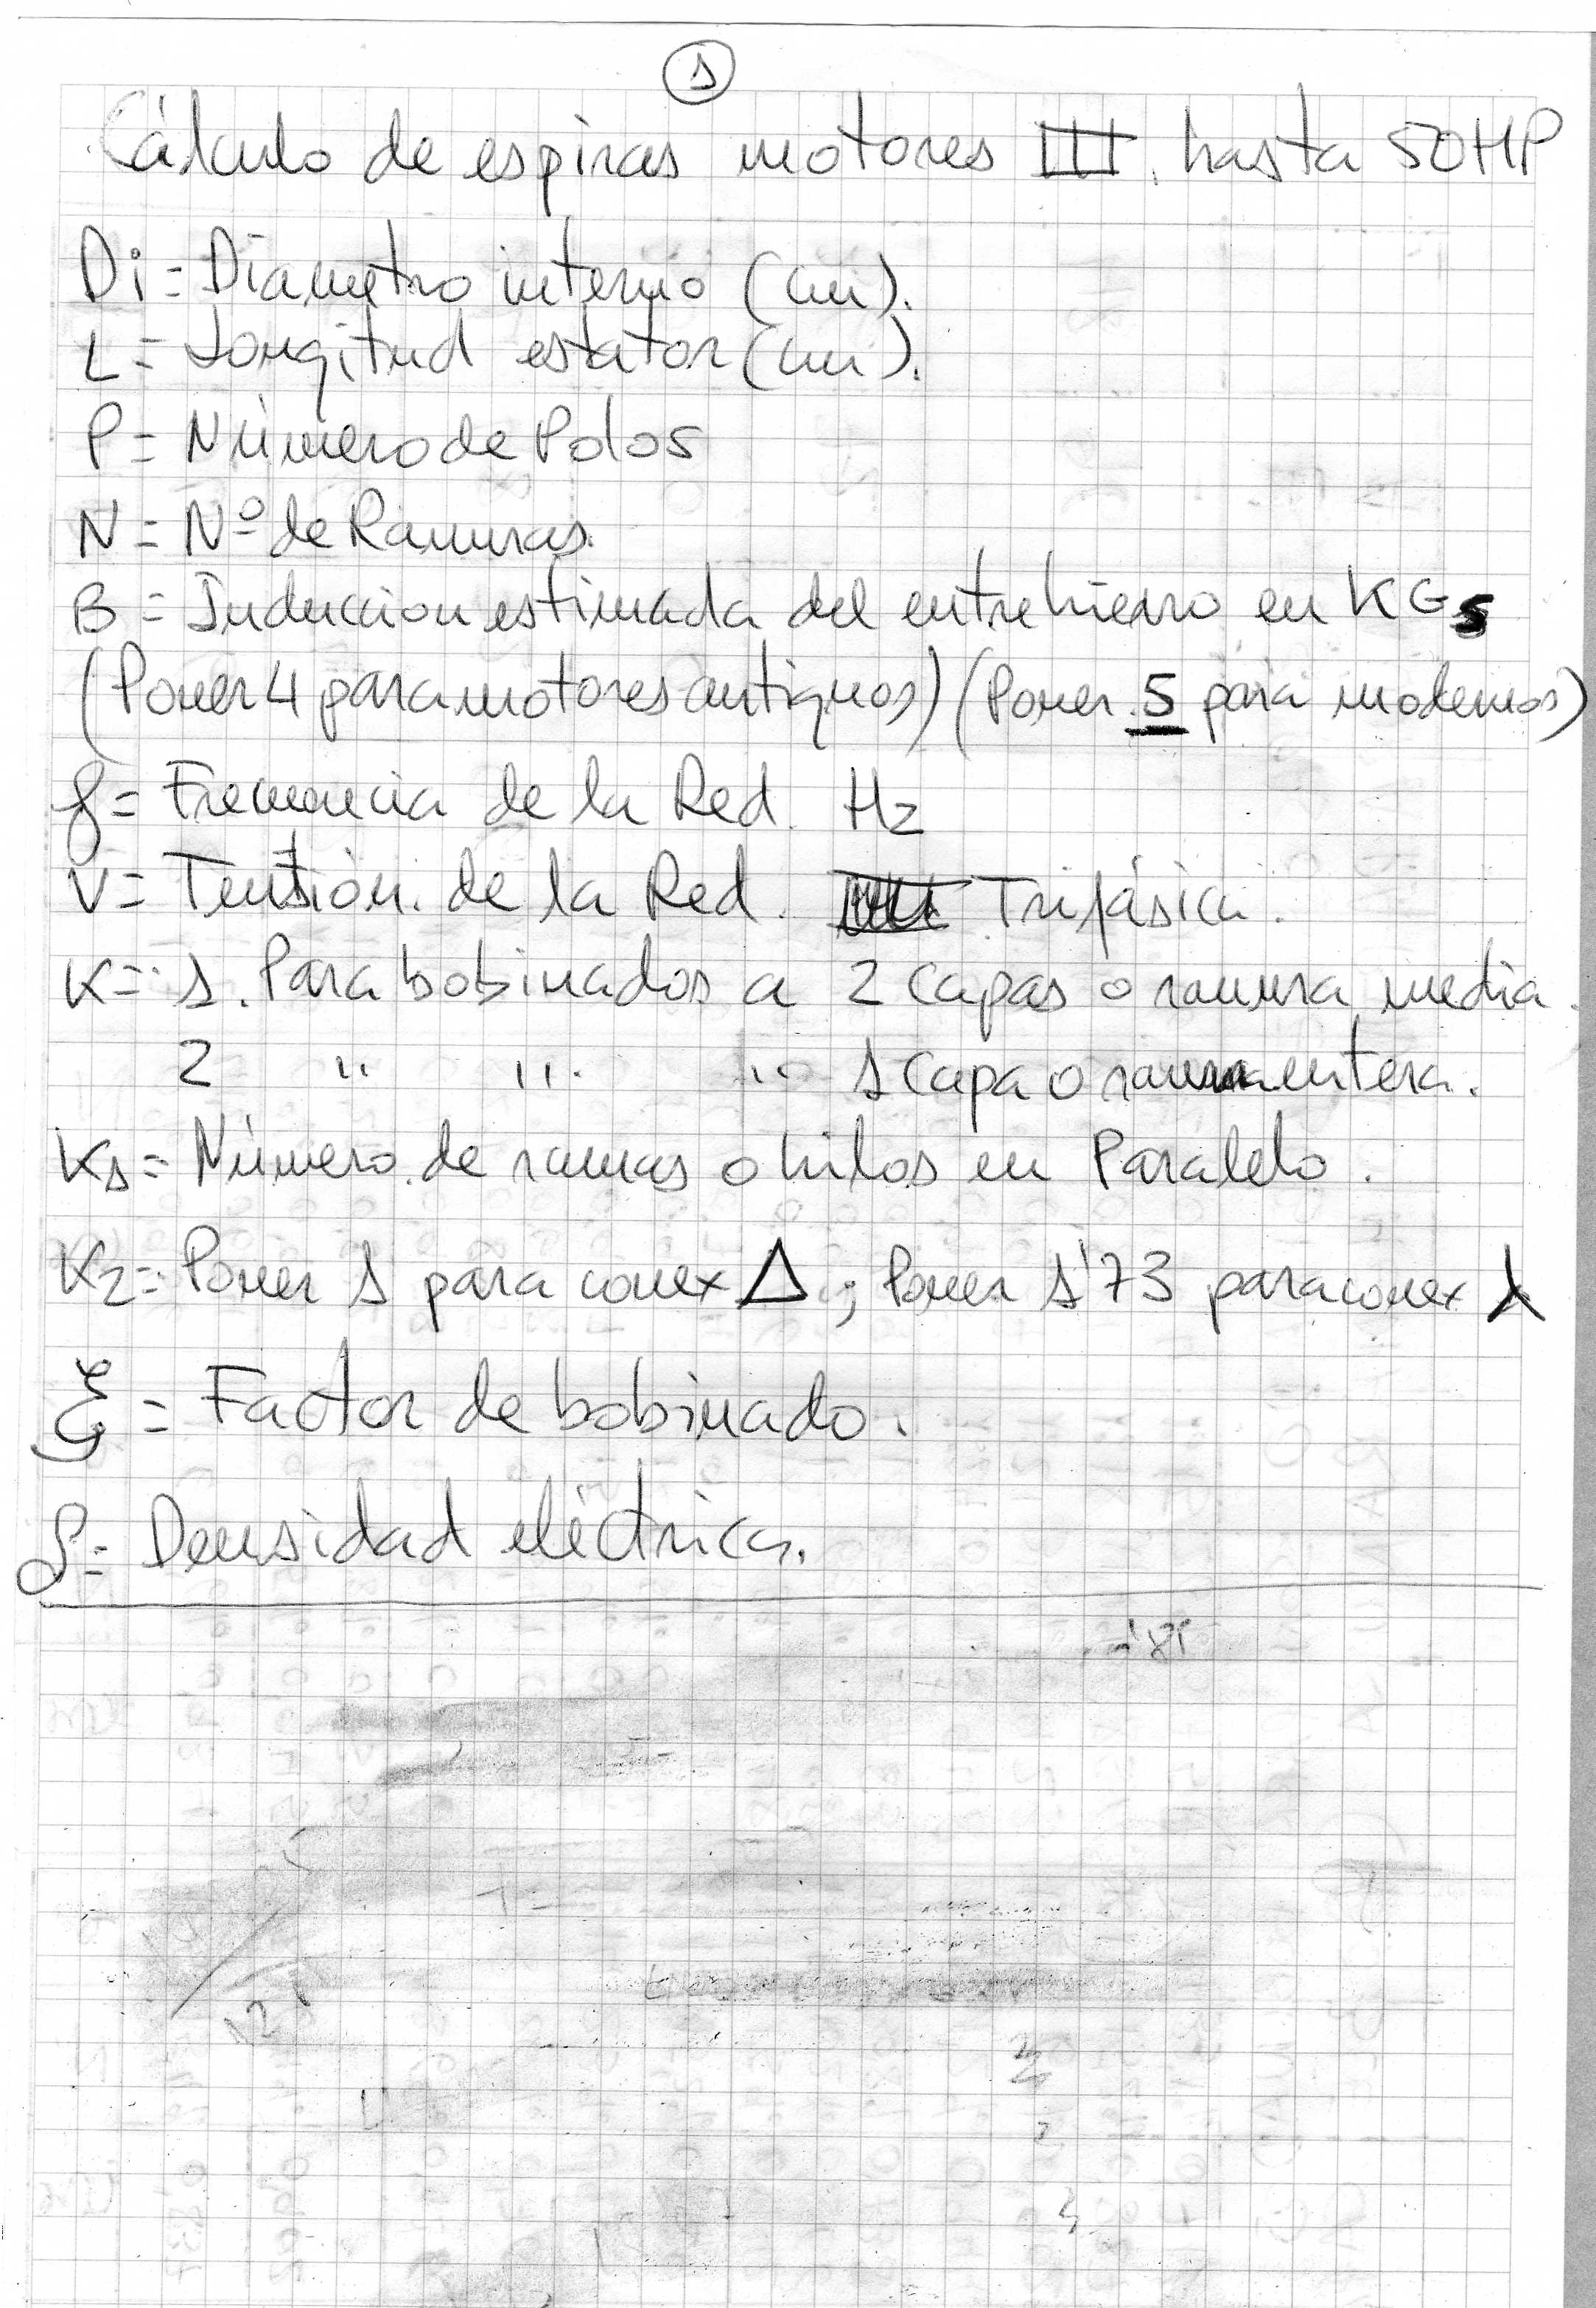 1
Cálculo de espiras motores III. hasta 50HP
Di = Diametro interno (cm).
L = Longitud estator (cm).
P = Número de Polos
N = Nº de Ranuras.
B = Induccion estimada del entrehierro en KGs
(Poner 4 para motores antiguos) (Poner 5 para modernos)
f = Frecuencia de la Red. Hz
V = Tensión. de la Red. Trifásica.
K = 1. Para bobinados a 2 capas o ranura media.
2 " " " 1 capa o ranura entera.
K1 = Número de ramas o hilos en Paralelo.
K2 = Poner 1 para conex Δ ; Poner 1'73 para conex ⅄
ξ = Factor de bobinado.
δ = Densidad eléctrica.